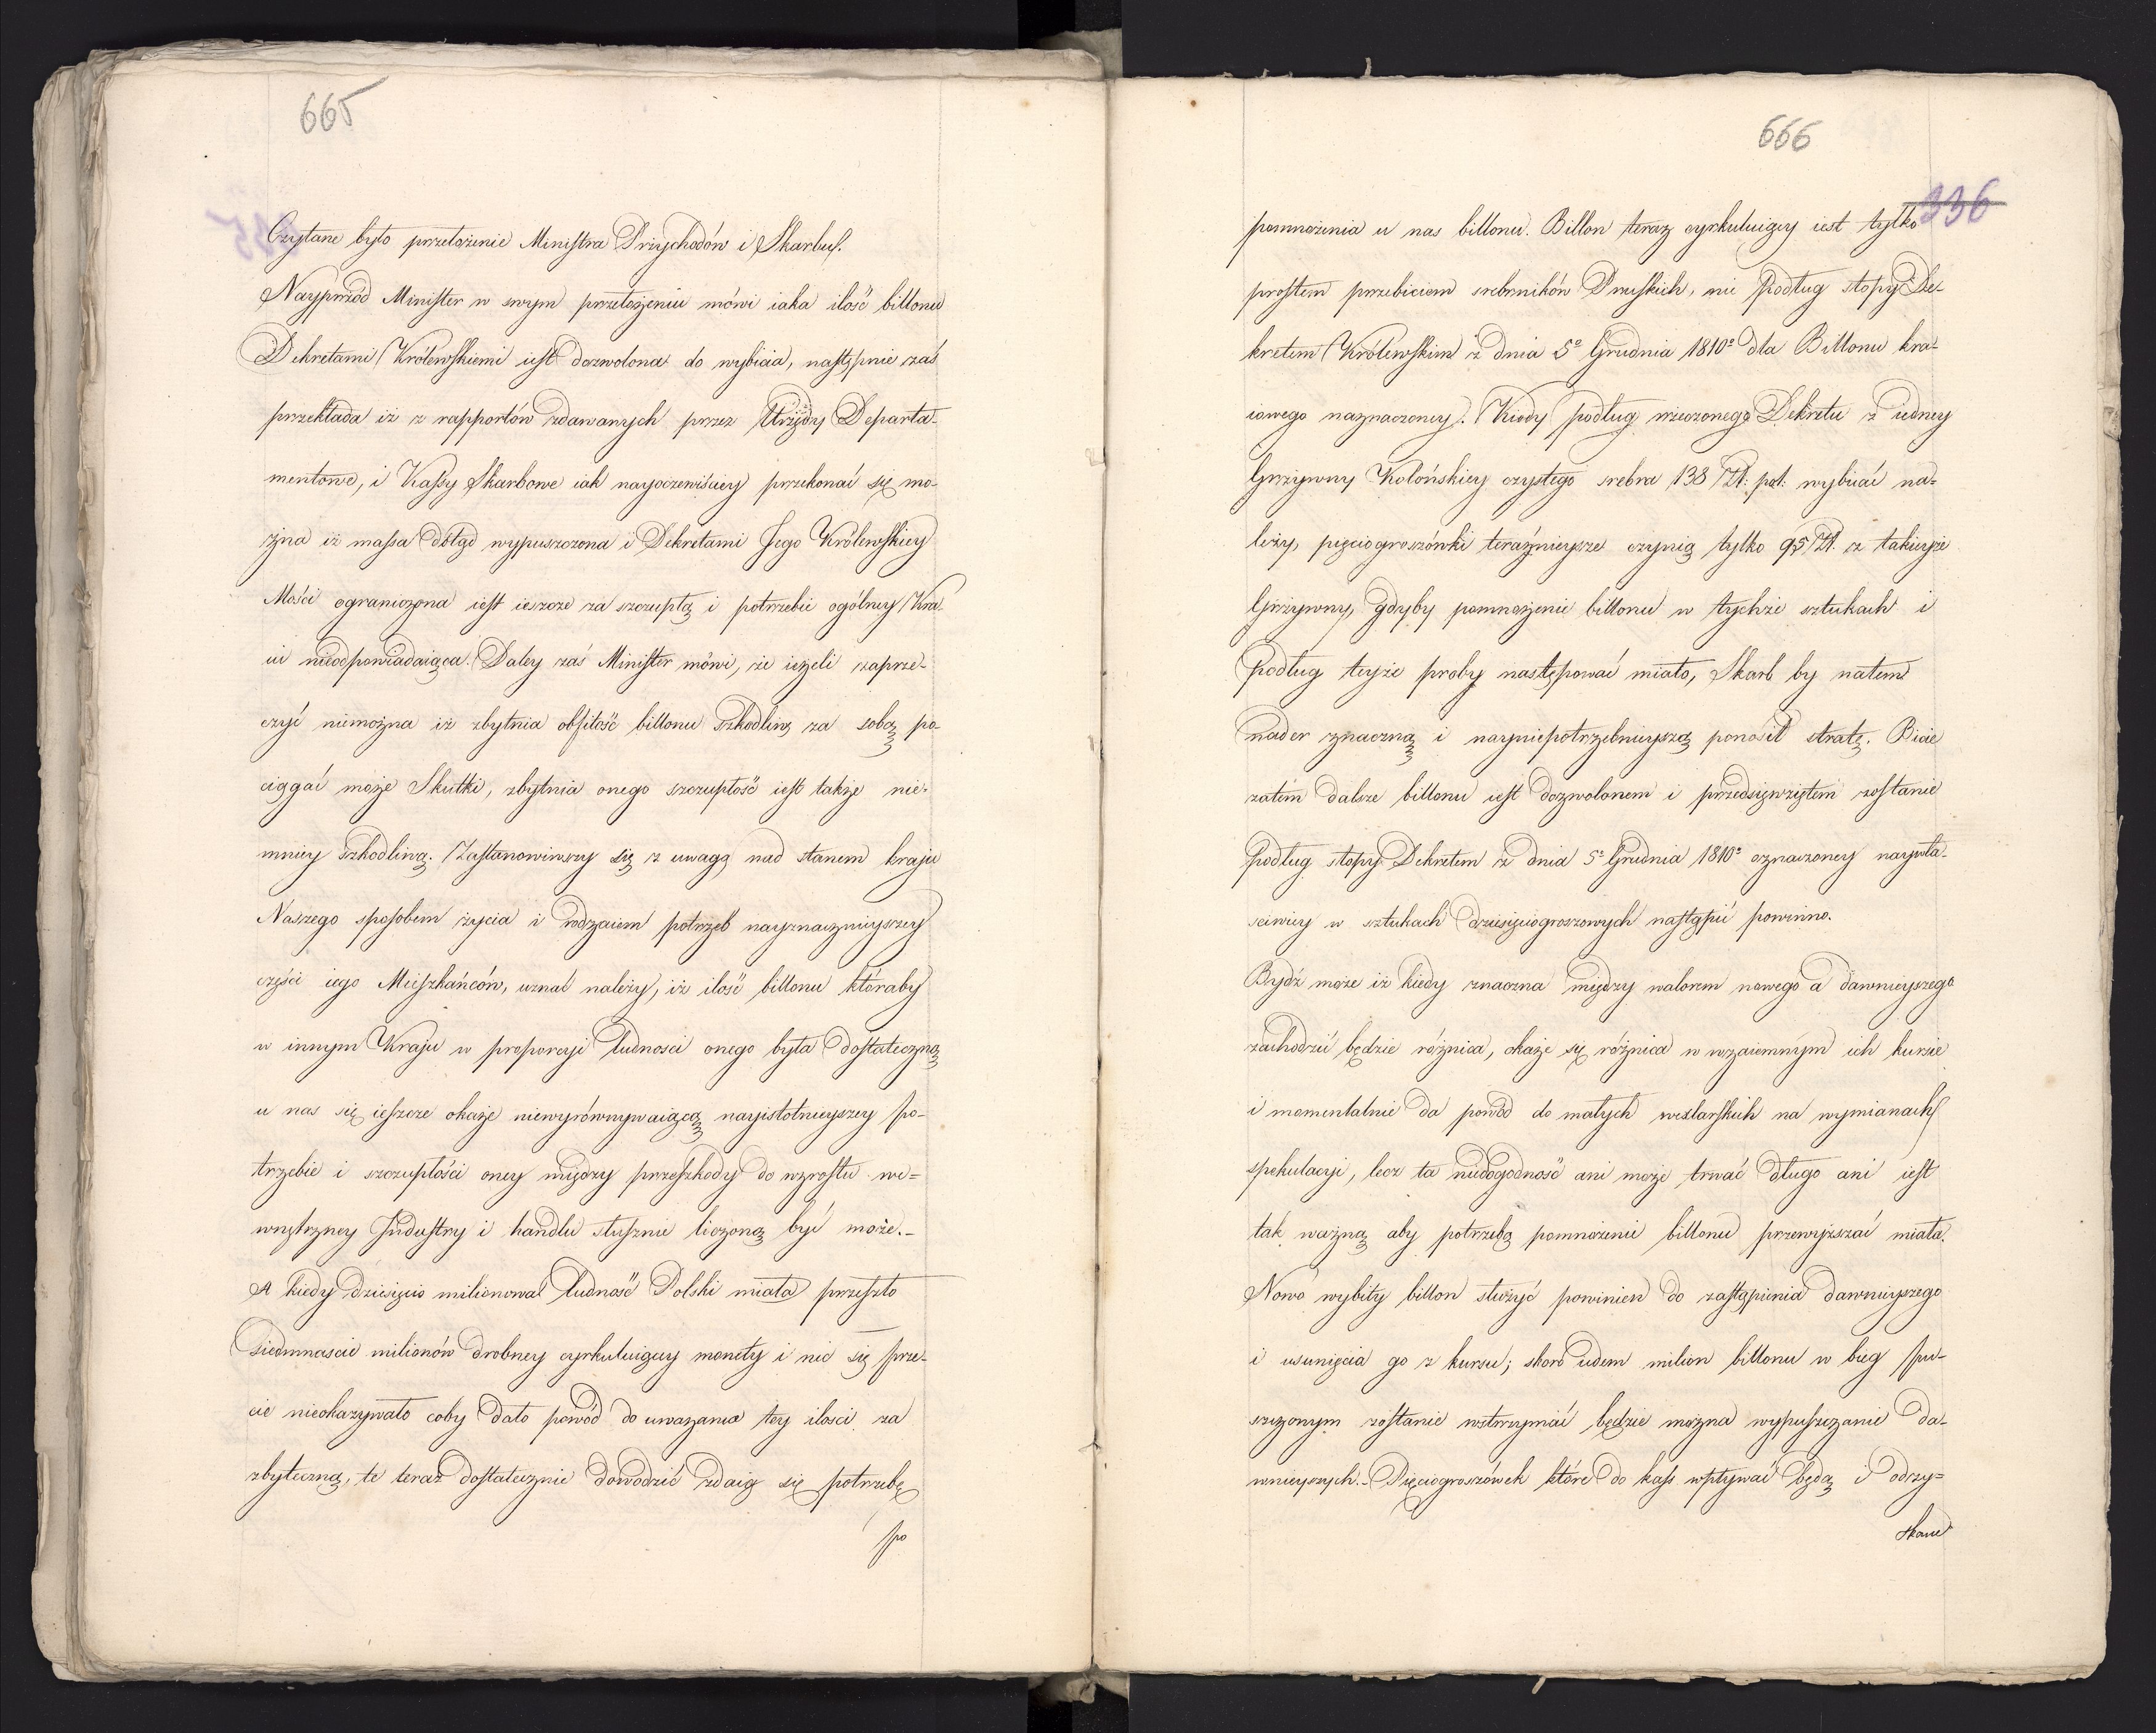 665
Czytane było przełożenie Ministra Przychodów i Skarbu.
Nayprzód Minister w swym przełożeniu mówi iaka ilość billonu
Dekretami Królewskiemi iest dozwolona do wybicia, następnie zaś
przekłada iż z rapportów zdawanych przez Urzędy Departa-
mentowe, i Kassy Skarbowe iak nayoczewiściey przekonać się mo-
żna iż massa dotąd wypuszczona i Dekretami Jego Królewskiey
Mości ograniczona iest ieszcze za szczupłą i potrzebie ogólney Kra-
iu nieodpowiadaiąca. Daley zaś Minister mówi, że ieżeli zaprze-
czyć niemożna iż zbytnia obfitość billonu szkodliwe za sobą po-
ciągać może Skutki, zbytnia onego szczupłość iest także nie-
mniey szkodliwą. Zastanowiwszy się z uwagą nad stanem kraju
Naszego sposobem życia i rodzaiem potrzeb nayznacznieyszey
części iego Mieszkańców, uznać należy, iż ilość billonu któraby
w innym Kraju w proporcyi ludnosci onego była dostateczną
u nas się ieszcze okaże niewyrównywaiącą nayistotnieyszey po-
trzebie i szczupłości oney między przeszkody do wzrostu we-
wnętrzney Industry i handlu słusznie liczoną być może.-
A kiedy dziesięcio milionowa ludność Polski miała przeszło
Siedmnascie milionów drobney cyrkuluiącey monety i nic się prze-
cie nieokazywało coby dało powód do uwazania tey ilosci za
zbyteczną, te teraz dostatecznie dowodzić zdaią się potrzebę
po
666
336
pomnożenia u nas billonu. Billon teraz cyrkuluiący iest tylko
prostem przebiciem srebrników Pruskich, nie podług stopy De-
kretem Królewskim z dnia 5º Grudnia 1810º dla Billonu kra-
iowego naznaczoney. Kiedy podług rzeczonego Dekretu z iedney
Grzywny Kolońskiey czystego srebra 138 Zł: pol: wybiiać na-
leży, pięciogroszówki teraźnieysze czynią tylko 95 Zł. z takieyże
Grzywny, gdyby pomnożenie billonu w tychże sztukach i
Podług teyże proby następować miało, Skarb by natem
nader znaczną i nayniepotrzebnieyszą ponosił stratę. Bicie
zatém dalsze billonu iest dozwolonem i przedsięwziętem zostanie
Podług stopy Dekretem z dnia 5º Grudnia 1810º oznaczoney naywła-
sciwiey w sztukach dziesięciogroszowych nastąpić powinno.
Bydź może iż kiedy znaczna między walorem nowego a dawnieyszego
zachodzić będzie różnica, okaże się różnica w wzaiemnym ich kursie
i momentalnie da powód do małych wexlarskich na wymianach
spekulacyi, lecz ta niedogodność ani może trwać długo ani iest
tak ważną aby potrzebę pomnożenie billonu przewyższać miała.
Nowo wybity billon służyć powinien do zastąpienia dawnieyszego
i usunięcia go z kursu; skoro ieden milion billonu w bieg pu-
szczonym zostanie wstrzymać będzie można wypuszczanie da-
wnieyszych.- Pięciogroszówek które do kass wpływać będą i odzy-
skane